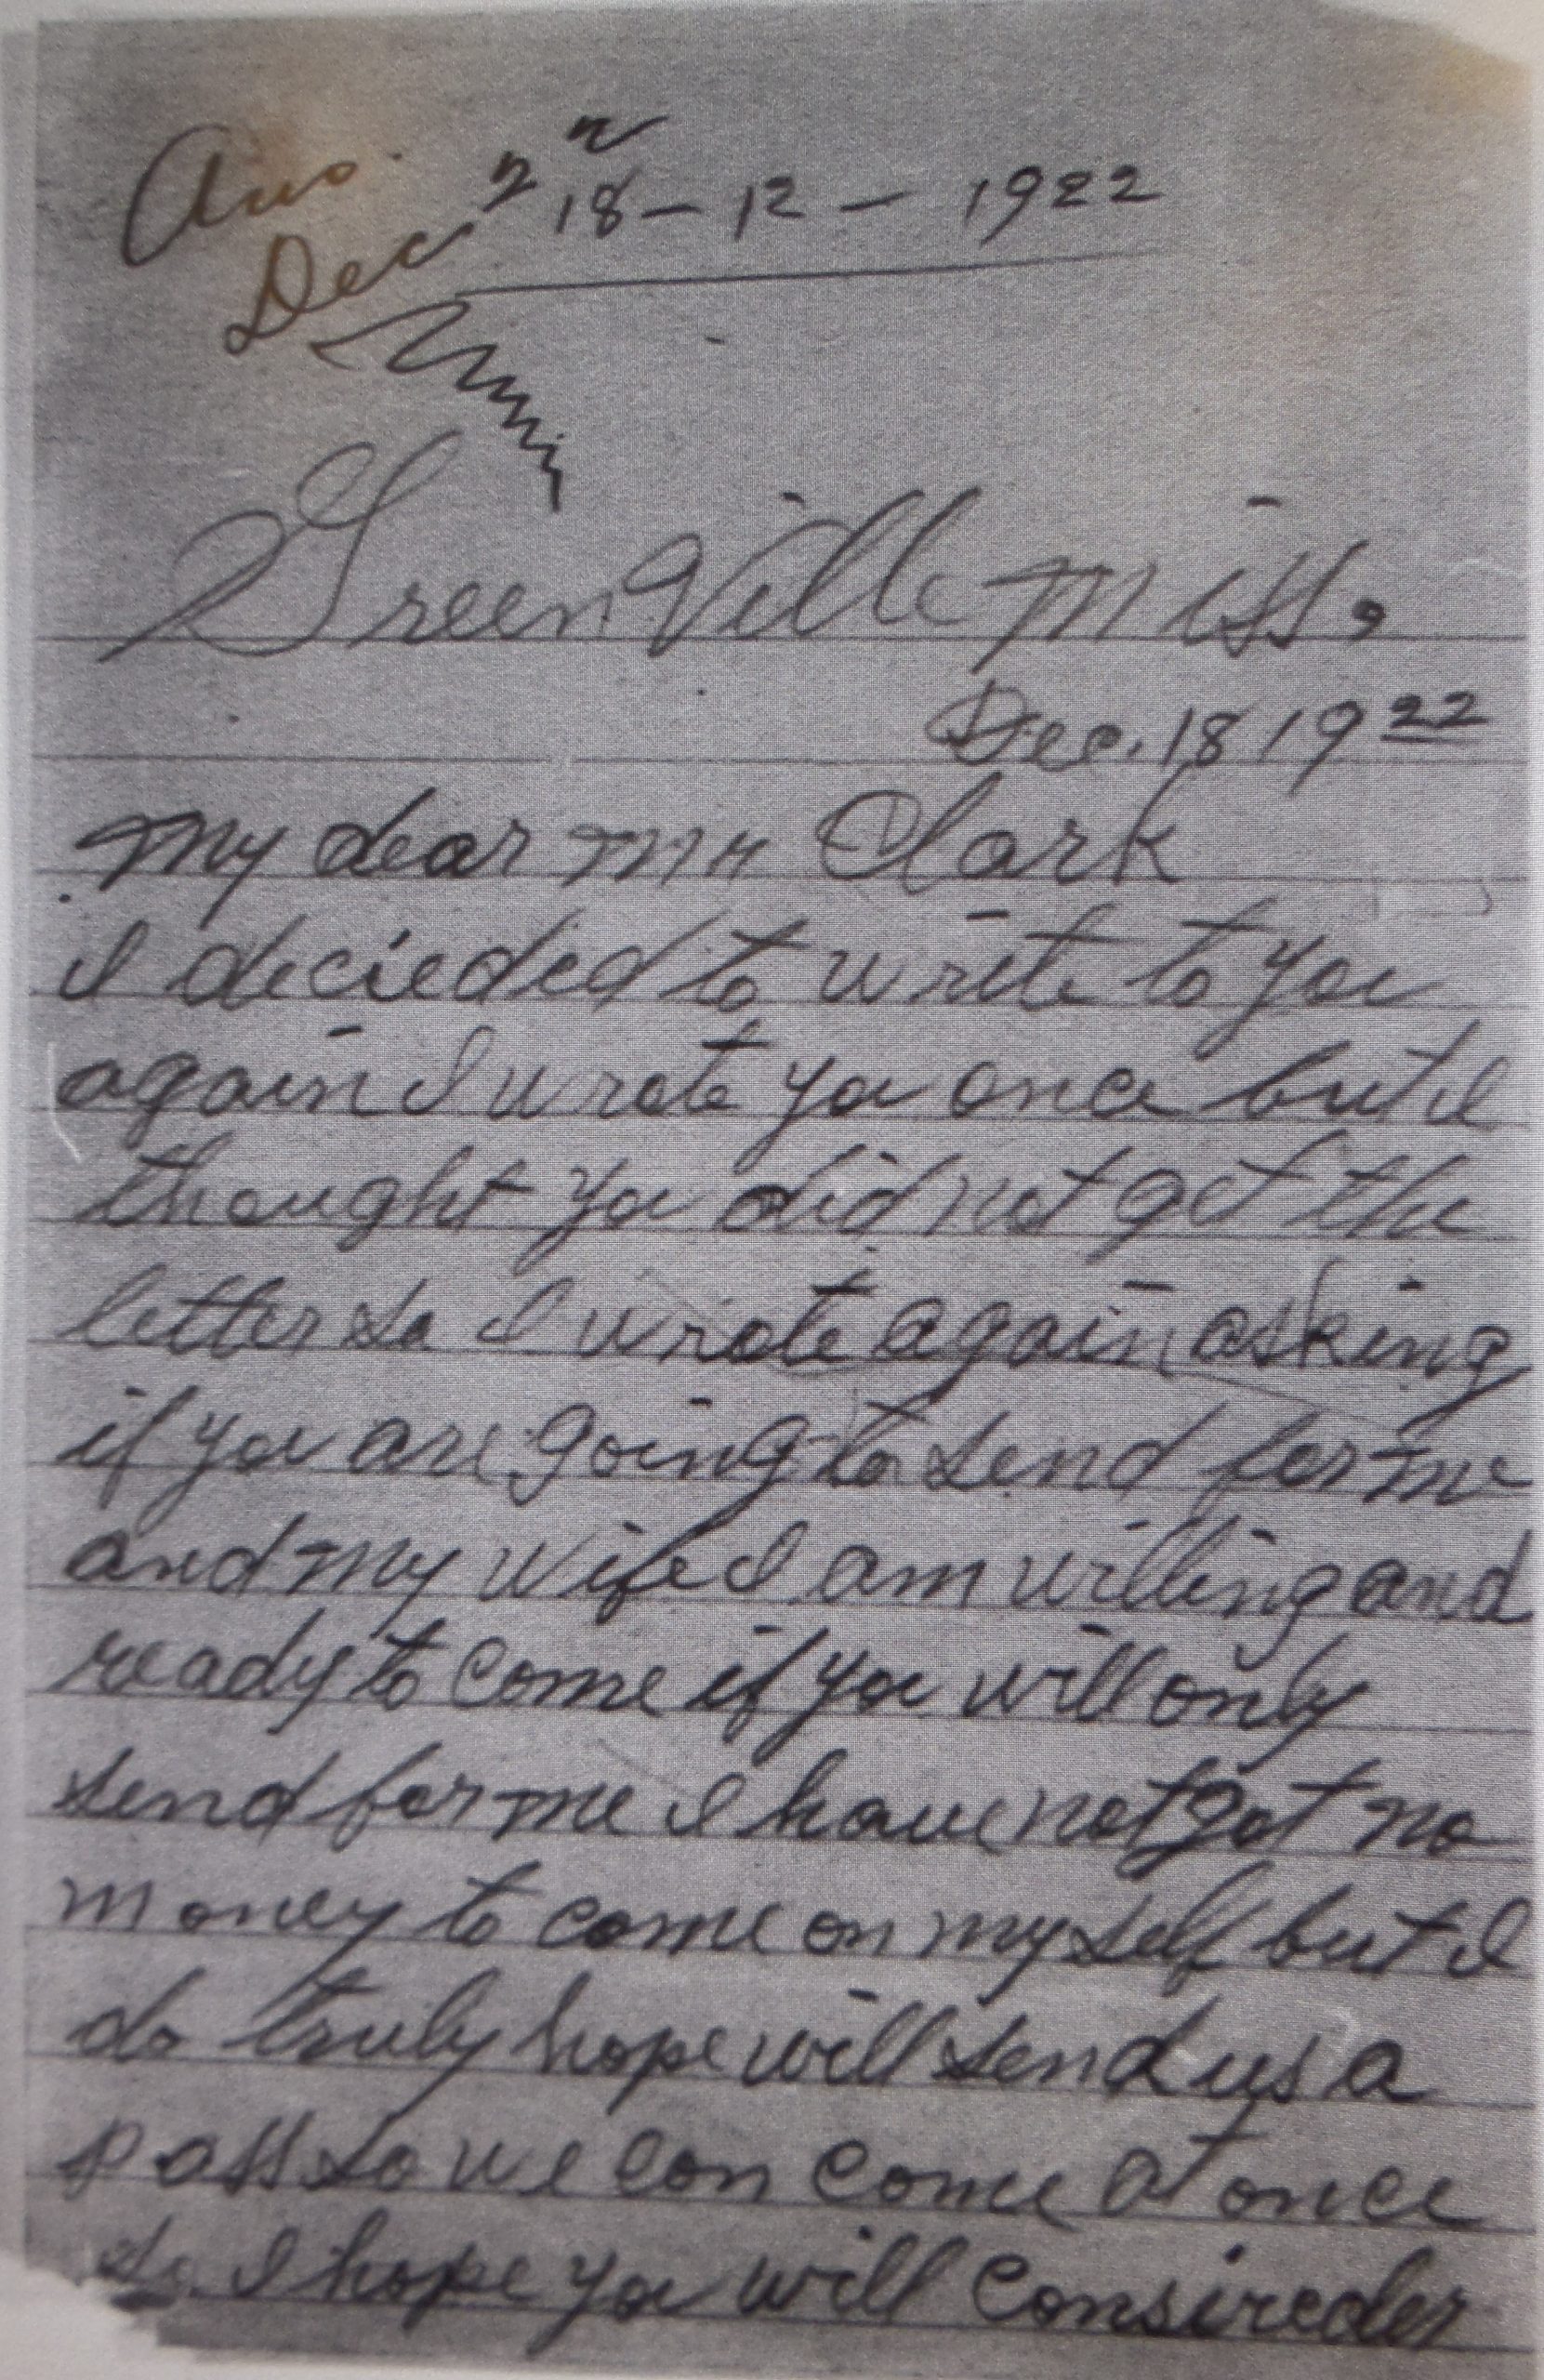 Ans.
Dec 22
18-12-1922
GreenVille Miss.
Dec. 18 1922
my dear Mr Clark
I decieded to write to you
again I wrote you once but I
thought you did not get the
letter so I wrote again asking
if you are going to send for me
and my wife I am willing and
ready to come if you will only
send for me I have not got no
money to come on my self but I
do truly hope will send us a
pass so we can come at once
so I hope you will Consireder